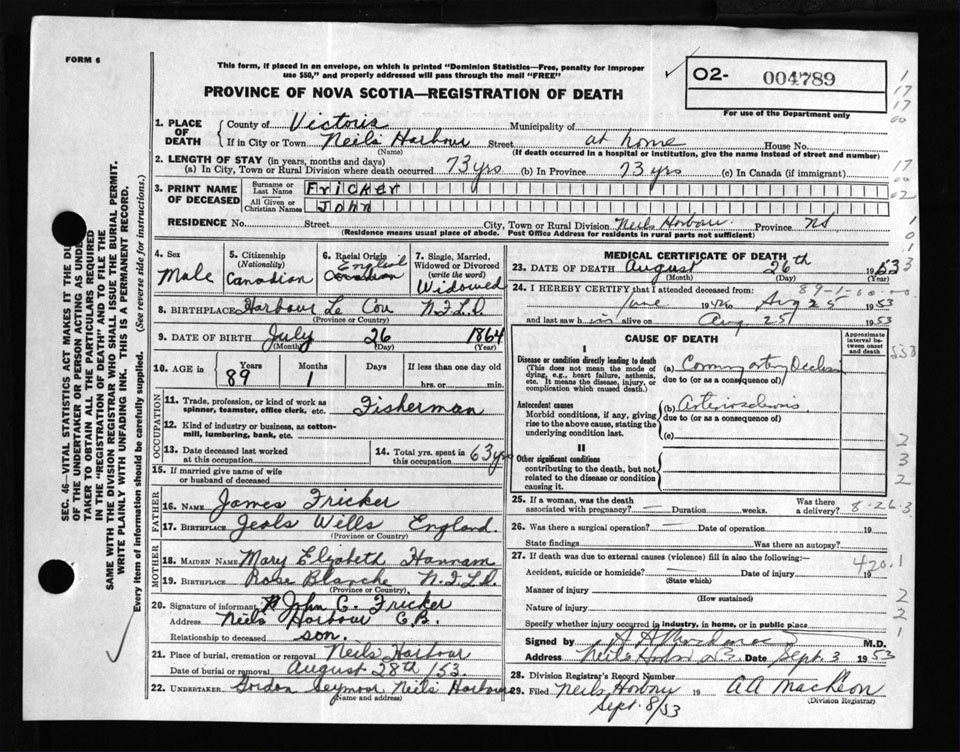 FORM 6
This form, if placed in an envelope, on which is printed "Dominion Statistics—Free, penalty for improper
use $50," and properly addressed will pass through the mail "FREE"
O2- 004789
For use of the Department only
PROVINCE OF NOVA SCOTIA—REGISTRATION OF DEATH
1. PLACE OF DEATH { County of Victoria Municipality of
If in City or Town Neils Harbour Street at home House No.
(Name) (If death occurred in a hospital or institution, give the name instead of street and number)
2. LENGTH OF STAY (in years, months and days)
(a) In City, Town or Rural Division where death occurred 73 yrs (b) In Province 73 yrs (c) In Canada (if immigrant)
3. PRINT NAME OF DECEASED { Surname or Last Name Fricker
All Given or Christian Names John
RESIDENCE No. Street City, Town or Rural Division Neils Harbour Province NS
(Residence means usual place of abode. Post Office Address for residents in rural parts not sufficient)
4. Sex Male
5. Citizenship (Nationality) Canadian
6. Racial Origin English Canadian
7. Single, Married, Widowed or Divorced (write the word) Widowed
8. BIRTHPLACE Harbour Le Cou N.F.L.D.
(Province or Country)
9. DATE OF BIRTH July 26 1864
(Month) (Day) (Year)
10. AGE in { Years 89 Months 1 Days If less than one day old hrs. or min.
OCCUPATION
11. Trade, profession, or kind of work as spinner, teamster, office clerk, etc. Fisherman
12. Kind of industry or business, as cotton-mill, lumbering, bank, etc.
13. Date deceased last worked at this occupation
14. Total yrs. spent in this occupation 63 yrs
15. If married give name of wife or husband of deceased
FATHER
16. NAME James Fricker
17. BIRTHPLACE Wells England
(Province or Country)
MOTHER
18. MAIDEN NAME Mary Elizabeth Hannam
19. BIRTHPLACE Rose Blanche N.F.L.D.
(Province or Country)
20. Signature of informant John C. Fricker
Address Neils Harbour C.B.
Relationship to deceased son.
21. Place of burial, cremation or removal Neils Harbour
Date of burial or removal August 28th /53
22. UNDERTAKER Gordon Seymour Neils Harbour
(Name and address)
MEDICAL CERTIFICATE OF DEATH
23. DATE OF DEATH August 26th 1953
(Month) (Day) (Year)
24. I HEREBY CERTIFY that I attended deceased from: 89-1-00-00
June 1946 Aug 25 1953
and last saw him alive on Aug 25 1953
CAUSE OF DEATH
Approximate interval between onset and death
I
Disease or condition directly leading to death
(This does not mean the mode of dying, e.g., heart failure, asthenia, etc. It means the disease, injury, or complication which caused death.)
(a) Coronary artery Occlusion
due to (or as a consequence of)
Antecedent causes
Morbid conditions, if any, giving rise to the above cause, stating the underlying condition last.
(b) Arteriosclerosis
due to (or as a consequence of)
(c)
II
Other significant conditions
contributing to the death, but not related to the disease or condition causing it.
25. If a woman, was the death associated with pregnancy? Duration weeks. Was there a delivery? 8-26-3
26. Was there a surgical operation? Date of operation 19
State findings Was there an autopsy?
27. If death was due to external causes (violence) fill in also the following:— 420.1
Accident, suicide or homicide? Date of injury 19
(State which)
Manner of injury
(How sustained)
Nature of injury
Specify whether injury occurred in industry, in home, or in public place
Signed by M.D.
Address Neils Date Sept. 3 1953
28. Division Registrar's Record Number
29. Filed Neils Harbour 19 A A MacLeon
Sept. 8/53 (Division Registrar)
SEC. 46—VITAL STATISTICS ACT MAKES IT THE
OF THE UNDERTAKER OR PERSON ACTING AS
TAKER TO OBTAIN ALL THE PARTICULARS REQUIRED
IN THE "REGISTRATION OF DEATH" AND TO FILE THE
SAME WITH THE DIVISION REGISTRAR WHO SHALL ISSUE THE BURIAL PERMIT.
WRITE PLAINLY WITH UNFADING INK. THIS IS A PERMANENT RECORD.
Every item of information should be carefully supplied. (See reverse side for instructions.)
1
17
17
00
17
00
02
1
0
1
3
553
2
3
2
2
2
1